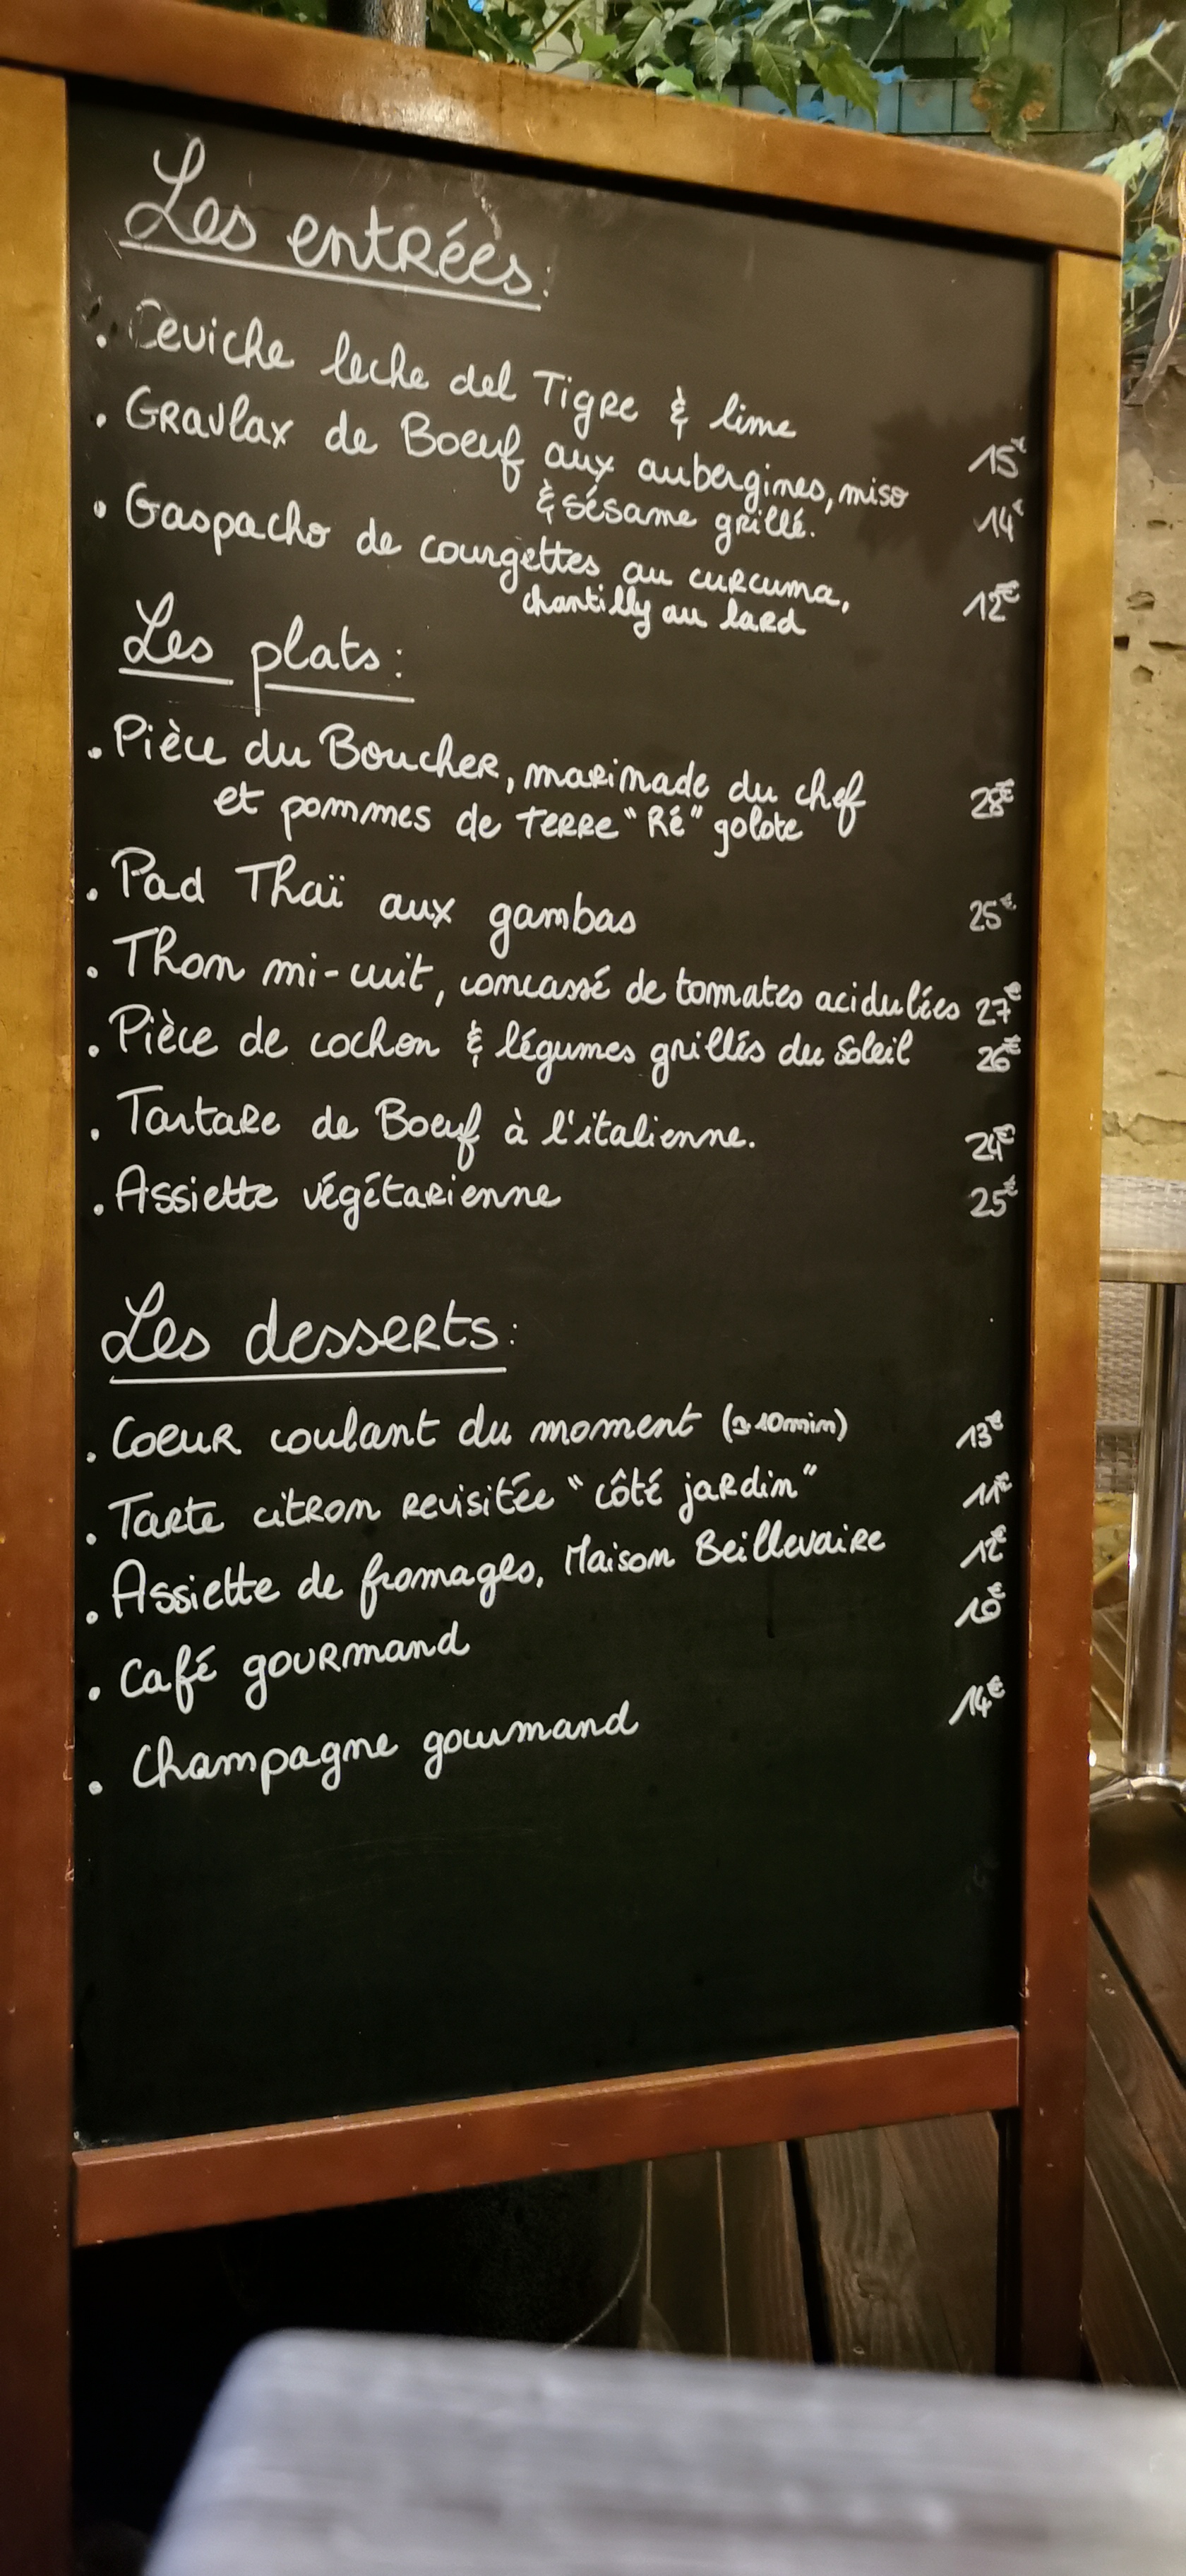 Les entrées:
. Ceviche leche del Tigre & lime 15€
. Gravlax de Boeuf aux aubergines, miso
& sésame grillé. 14€
. Gaspacho de courgettes au curcuma,
chantilly au lard 12€
Les plats:
. Pièce du Boucher, marinade du chef 28€
et pommes de terre "Ré" golote
. Pad Thaï aux gambas 25€
. Thon mi-cuit, concassé de tomates acidulées 27€
. Pièce de cochon & légumes grillés du soleil 26€
. Tartare de Boeuf à l'italienne. 24€
. Assiette végétarienne 25€
Les desserts:
. Coeur coulant du moment (10min) 13€
. Tarte citron revisitée "côté jardin" 11€
. Assiette de fromages, Maison Beillevaire 12€
. Café gourmand 10€
. Champagne gourmand 14€